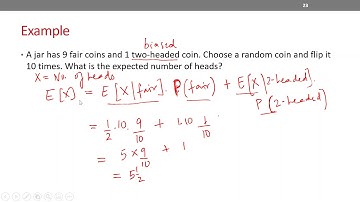 28
Example
biased
• A jar has 9 fair coins and 1 two-headed coin. Choose a random coin and flip it
10 times. What is the expected number of heads?
X = No. of heads
E[X] = E[X|fair]. P(fair) + E[X|2-headed].
P(2-headed)
= 1/2 . 10 . 9/10 + 1.10 1/10
= 5 × 9/10 + 1
= 5 1/2